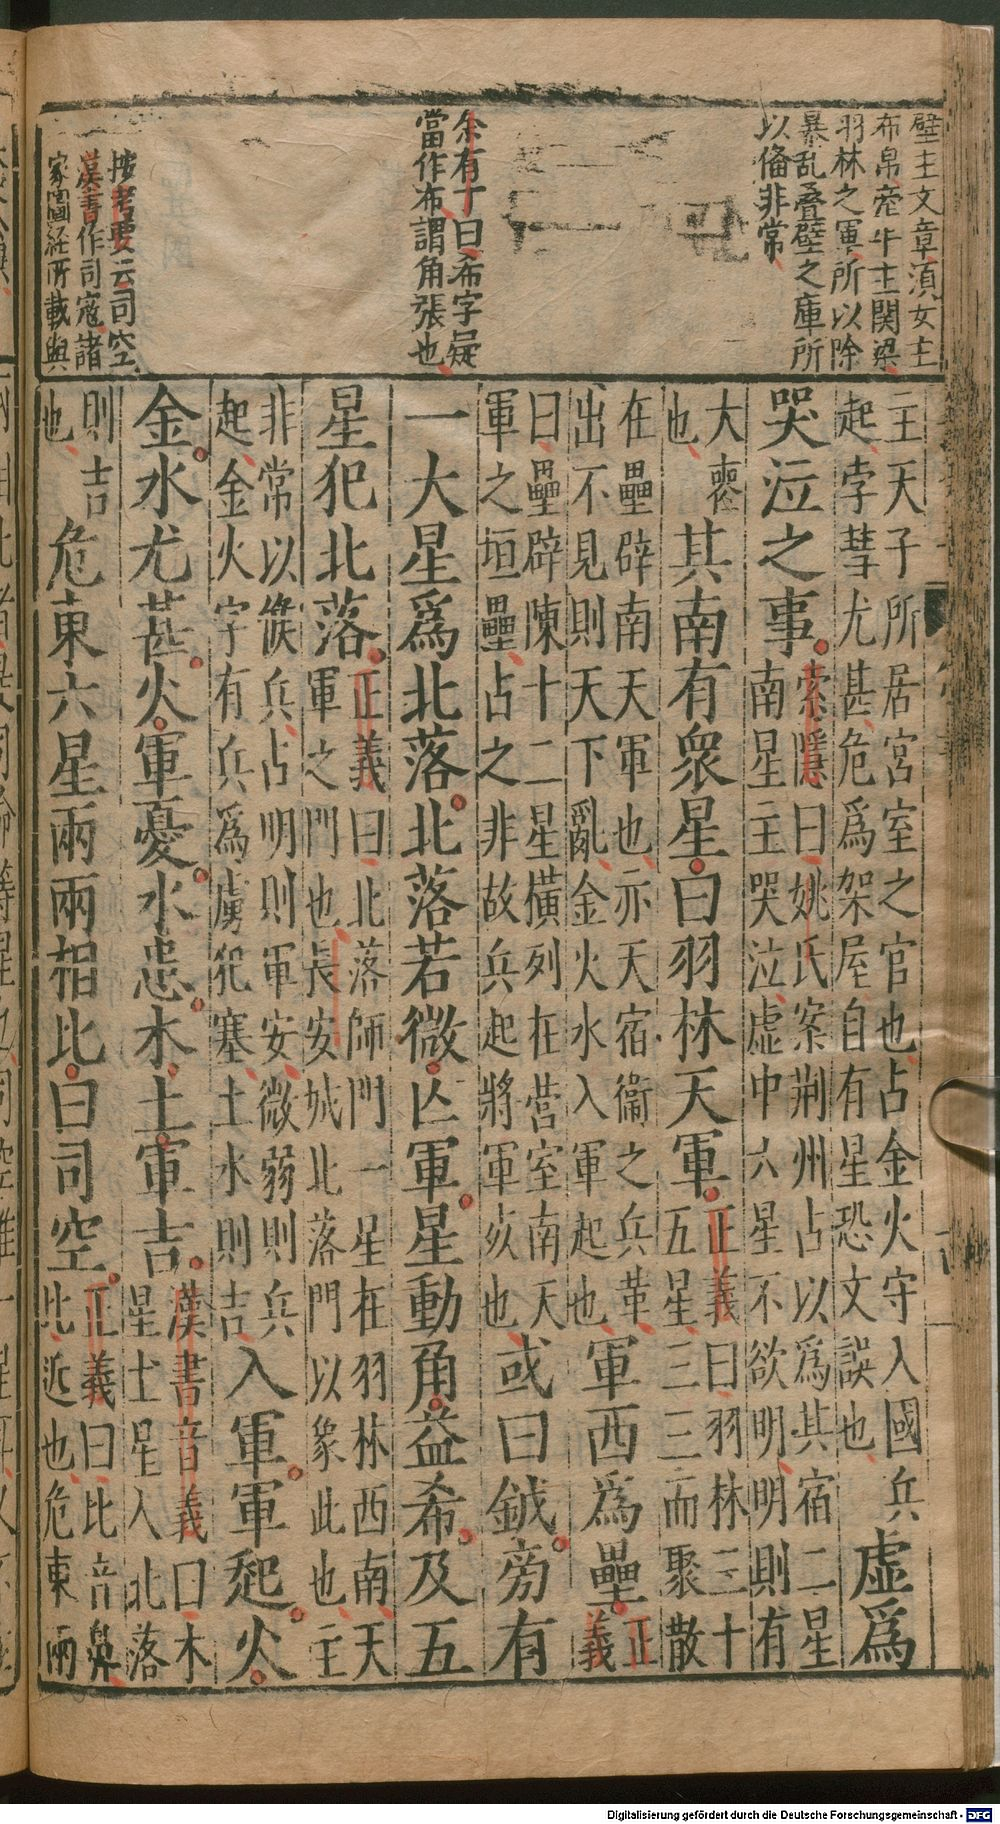 壁主文章湏女主
布帛牽牛主関梁
羽林之軍所以除
暴乱疊壁之庫所
以俻非常
余有丁曰希字疑
當作布謂角張也
按考要云司空
漢書作司寇諸
家圖経所載與
主天子所居宮室之官也占金火守入國兵
起孛彗尤甚危爲架屋自有星恐文誤也
虛爲
哭泣之事
索隱曰姚氏案荆州占以爲其宿二星
南星主哭泣虛中六星不欲明明則有
大喪
也
其南有衆星曰羽林天軍
正義曰羽林三十
五星三三而聚散
在壘辟南天軍也亦天宿衞之兵革
出不見則天下亂金火水入軍起也
軍西爲壘
正
義
曰壘辟陳十二星橫列在營室南天
軍之垣壘占之非故兵起將軍𡴞也
或曰鉞旁有
一大星爲北落北落若微亾軍星動角益希及五
星犯北落
正義曰北落師門一星在羽林西南天
軍之門也長安城北落門以象此也主
非常以候兵占明則軍安微弱則兵
起金火守有兵爲虜犯塞土水則吉
入軍軍起火
金水尤甚火軍憂水患木土軍吉
漢書音義曰木
星土星入北落
則吉
也
危東六星兩兩相比曰司空
正義曰比音鼻
比近也危東兩
Digitalisierung gefördert durch die Deutsche Forschungsgemeinschaft - DFG